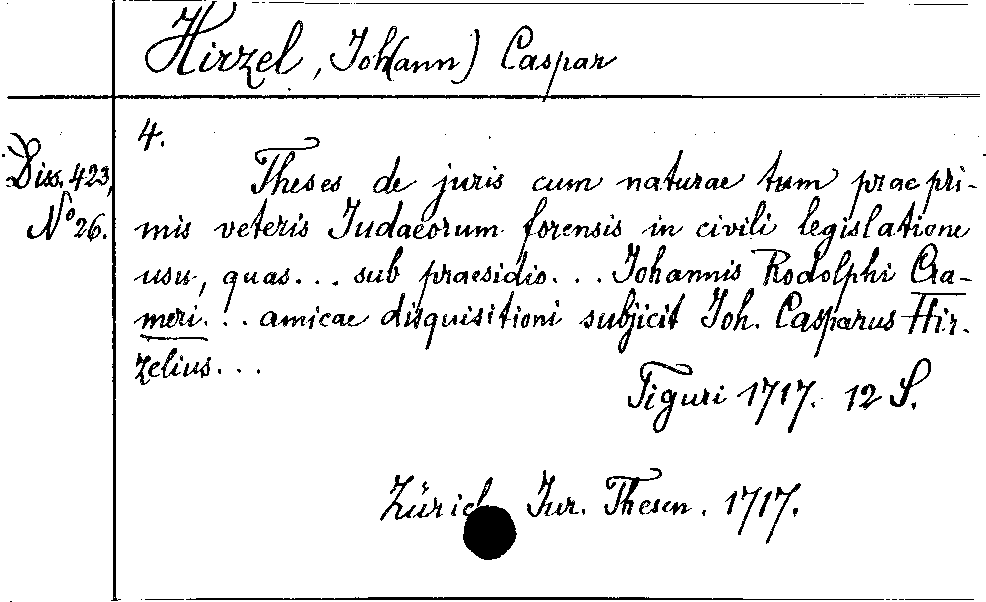 Hirzel, Joh(ann) Caspar
Diss. 423,
No 26.
4.
Theses de juris cum naturae tum praepri-
mis veteris Iudaeorum forensis in civili legislatione
usu, quas... sub praesidio... Iohannis Rodolphi Cra-
meri... amicae disquisitioni subjicit Joh. Casparus Hir-
zelius...
Tiguri 1717. 12 S.
Zürich Jur. Thesen. 1717.